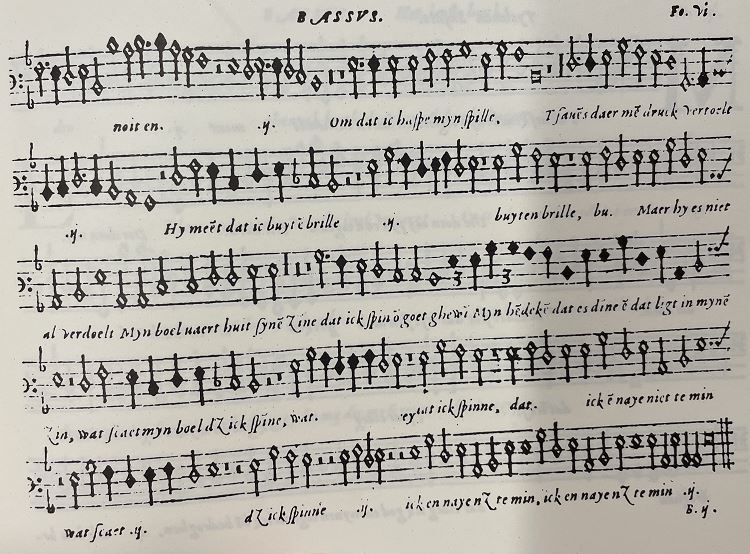 BASSVS. Fo. vi.
noit en. .ij. Om dat ic haspe myn spille, Tsauēs daer mē druck vertoelt
.ij. Hy meēt dat ic buyt ē brille .ij. buyten brille, bu. Maer hy es niet
al verdoelt Myn boel vaert huit synē Zine dat ick spin ō goet ghewī Myn hēdekē dat es dine ē dat ligt in mynē
Zin, wat scaet myn boel dZ ick spīne, wat. ey tut ick spinne, dat. ick ē naye niet te min
wat scaet .ij. dZ ick spinne .ij. ick en naye nZ te min, ick en naye nZ te min .ij.
B. ij.